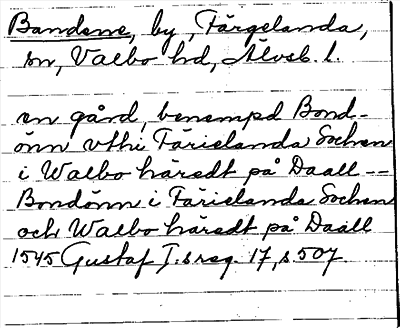 Bandene, by, Färgelanda,
sn, Valbo hd, Älvsb. l.
en gård, benempd Bond-
önn vthi Färielanda Sochen
i Walbo häredt på Daall --
Bondönn i Färielanda Sochen
och Walbo häredt på Daall
1545 Gustaf I:s reg. 17, s 507